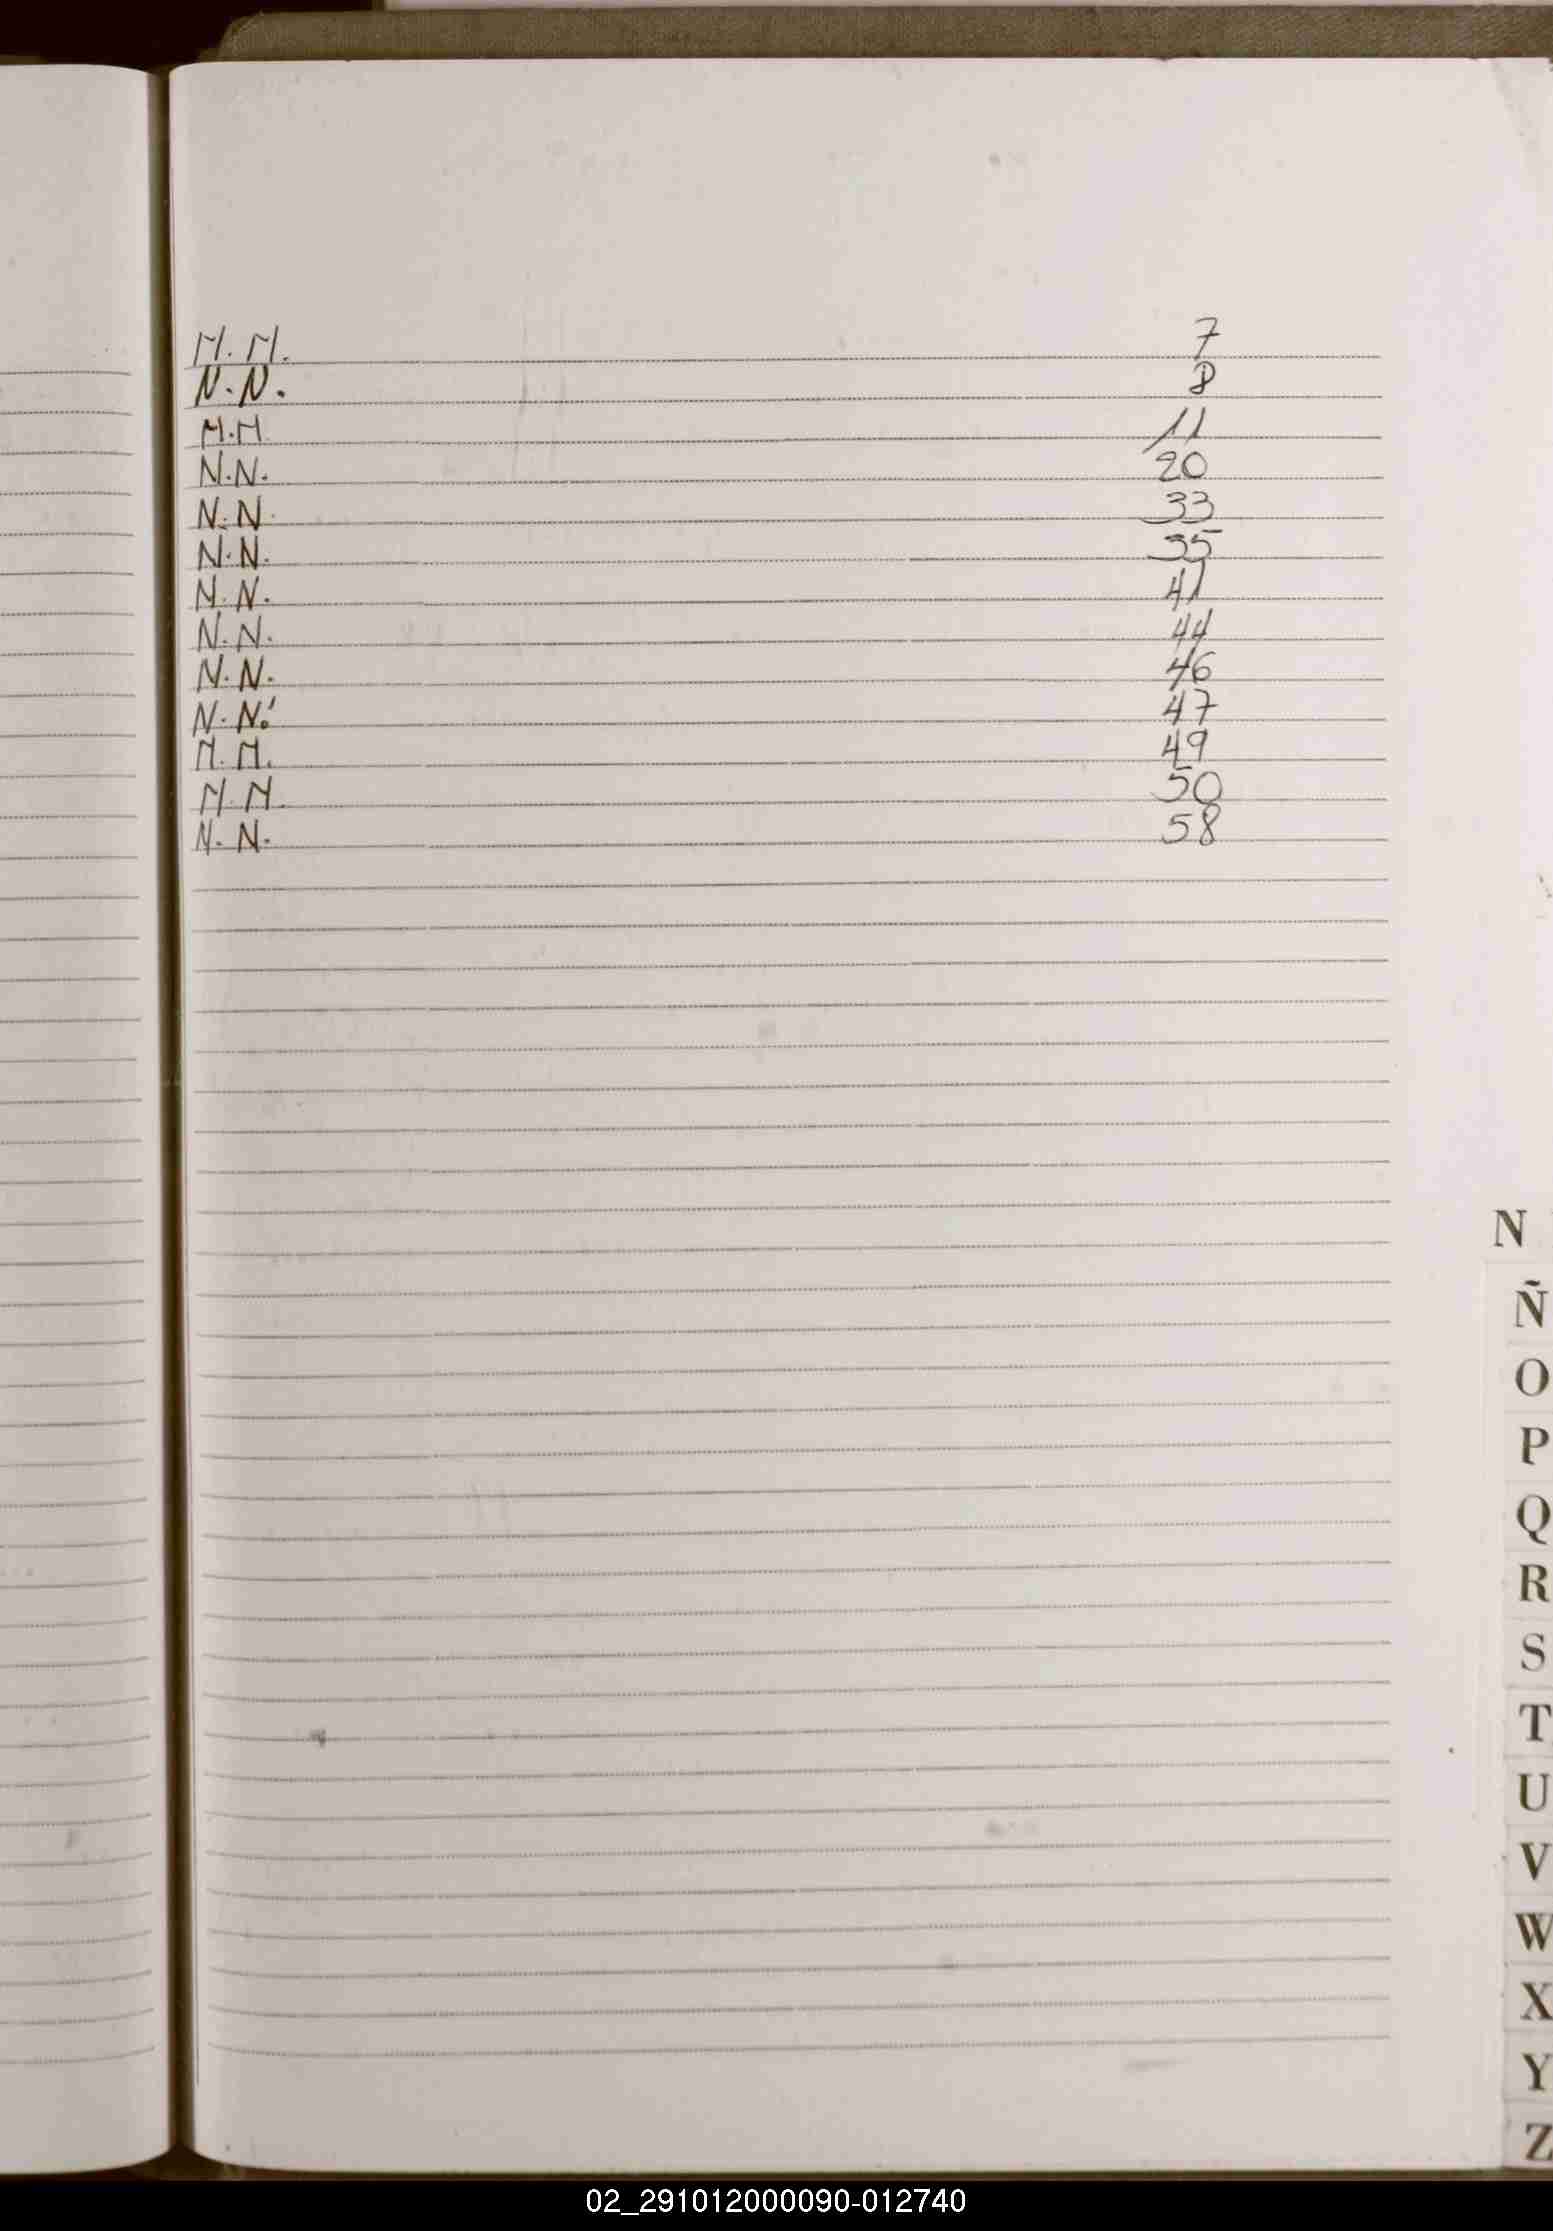 N. N. 7
N. N. 8
N. N. 11
N. N. 20
N. N. 33
N. N. 35
N. N. 41
N. N. 44
N. N. 46
N. N. 47
N. N. 49
N. N. 50
N. N. 58
N
Ñ
O
P
Q
R
S
T
U
V
W
X
Y
Z
02_291012000090-012740